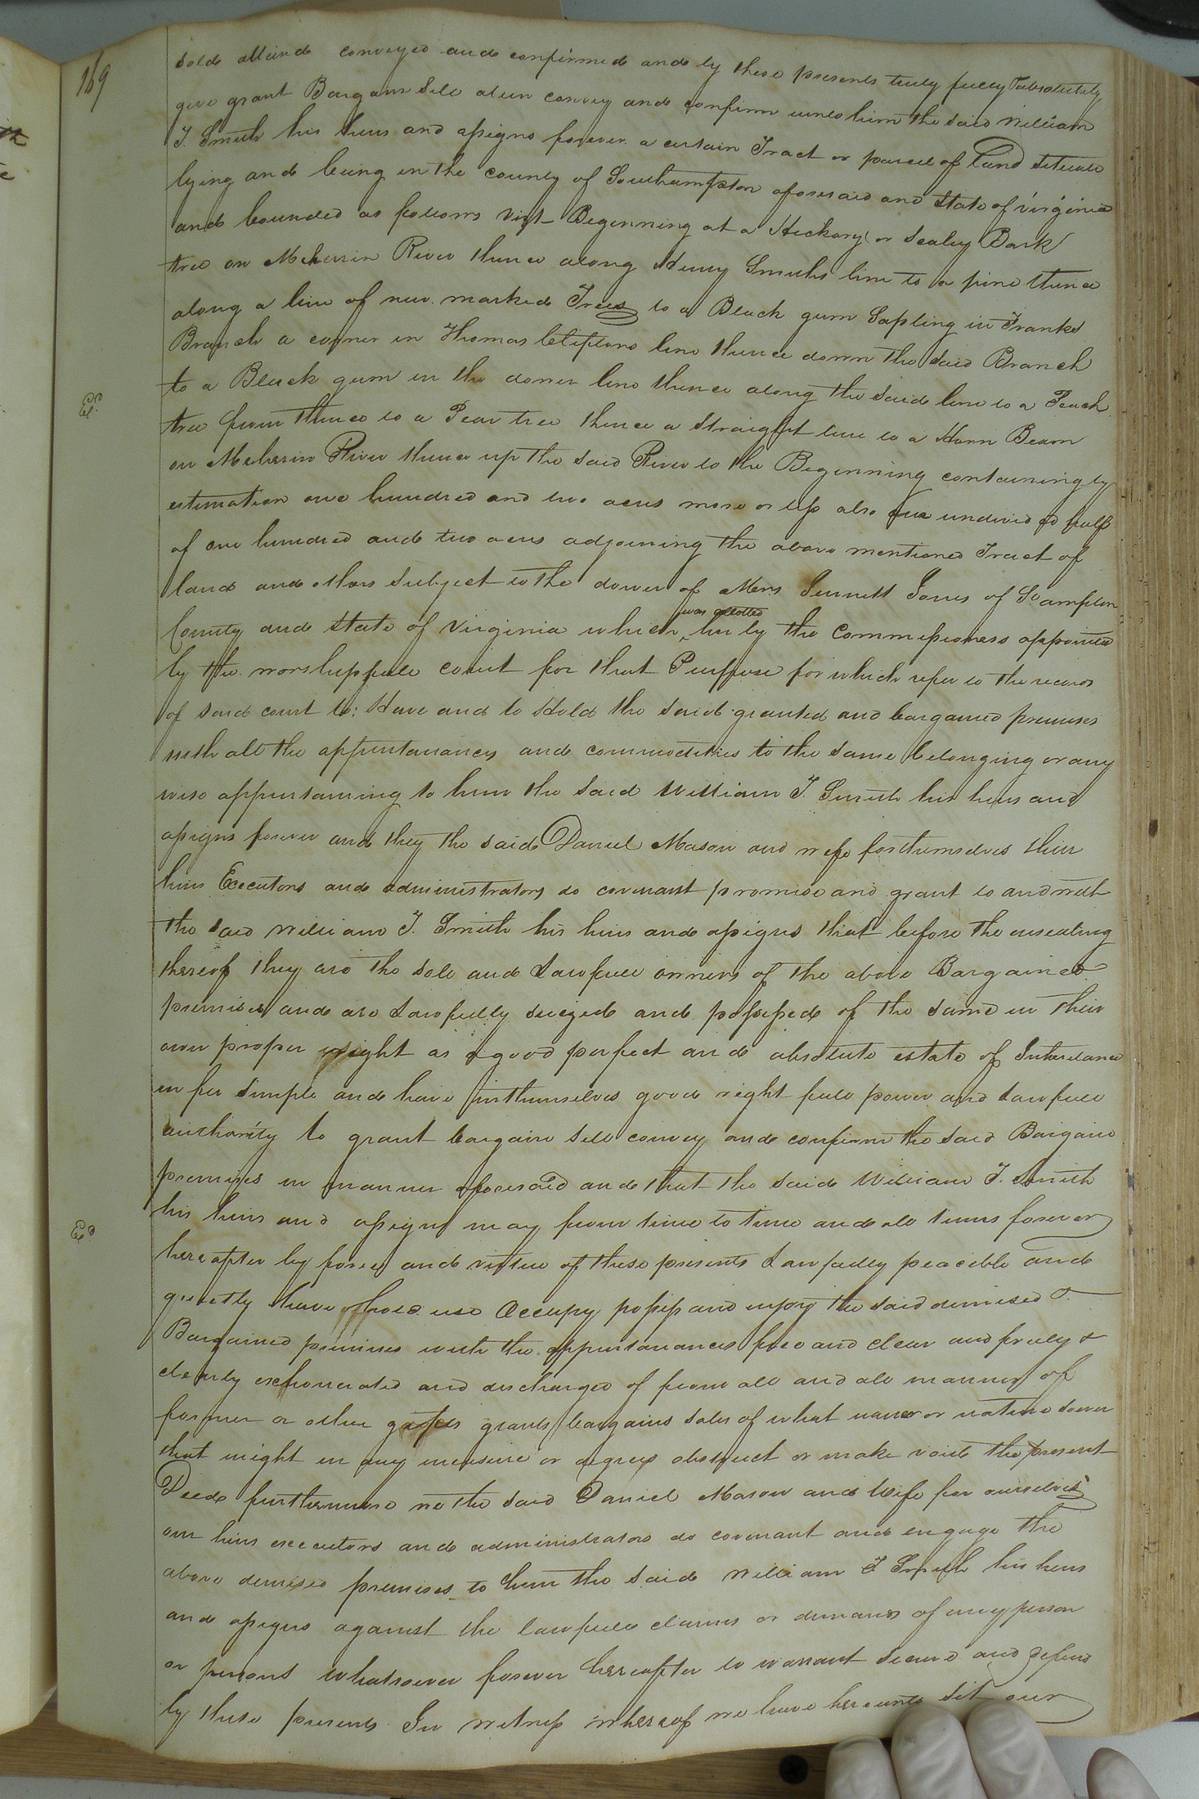 169
sold aliend conveyed and confirmed and by these presents truly fully & absolutely
give grant Bargain Sell alien convey and confirm unto him the said William
T. Smith his heirs and assigns forever a certain Tract or parcel of Land situate
lying and being in the county of Southampton aforesaid and State of virginia
and bounded as follows vizt Beginning at a Hickory or Scaley Bark
tree on Meherrin River thence along Henry Smiths line to a pine thence
along a line of new marked Trees to a Black gum Sapling in Franks
Branch a corner in Thomas Cliftons line thence down the said Branch
to a Black gum in the dower line thence along the said line to a Peach
tree from thence to a Pear tree thence a Straight line to a Horn Beam
on Meherrin River thence up the said River to the Beginning containing by
estimation one hundred and two acres more or less also one undivided half
of one hundred and two acres adjoining the above mentioned Tract of
land and others subject to the dower of Mrs Jones of Southampton
County and State of Virginia which was allotted her by the Commissioners appointed
by the worshipfull court for that Purpose for which refer to the records
of said court to: Have and to Hold the said granted and bargained premises
with all the appurtanances and commodities to the same belonging or any
wise appurtaining to him the said William T. Smith his heirs and
assigns forever and they the said Daniel Mason and wife for themselves their
heirs Executors and administrators do covenant promise and grant to and with
the said William T. Smith his heirs and assigns that before the ensealing
thereof they are the sole and Lawfull owners of the above Bargained
premises and are Lawfully seized and possessed of the same in their
own proper right as a good perfect and absolute estate of Inheritance
in fee simple and have in themselves good right full power and Lawfull
authority to grant bargain sell convey and confirm the said Bargaind
premises in manner aforesaid and that the said William T. Smith
his heirs and assigns may from time to time and all times forever
hereafter by force and virtue of these presents Lawfully peacible and
quietly have hold use Occupy possess and enjoy the said demised &
Bargained premises with the appurtanances free and clear and freely &
clearly exhonerated and discharged of from all and all manner of
former or other gifts grants bargains sales of what name or nature soever
that might in any measure or degree obstruct or make void the present
Deed furthermore we the said Daniel Mason and Wife for ourselves
our heirs executors and administrators do covenant and engage the
above demised premises to him the said William T Smith his heirs
and assigns against the lawfull claims or demands of any person
or persons whatsoever forever hereafter to warrant secure and defend
by these presents In witness whereof we have hereunto set our